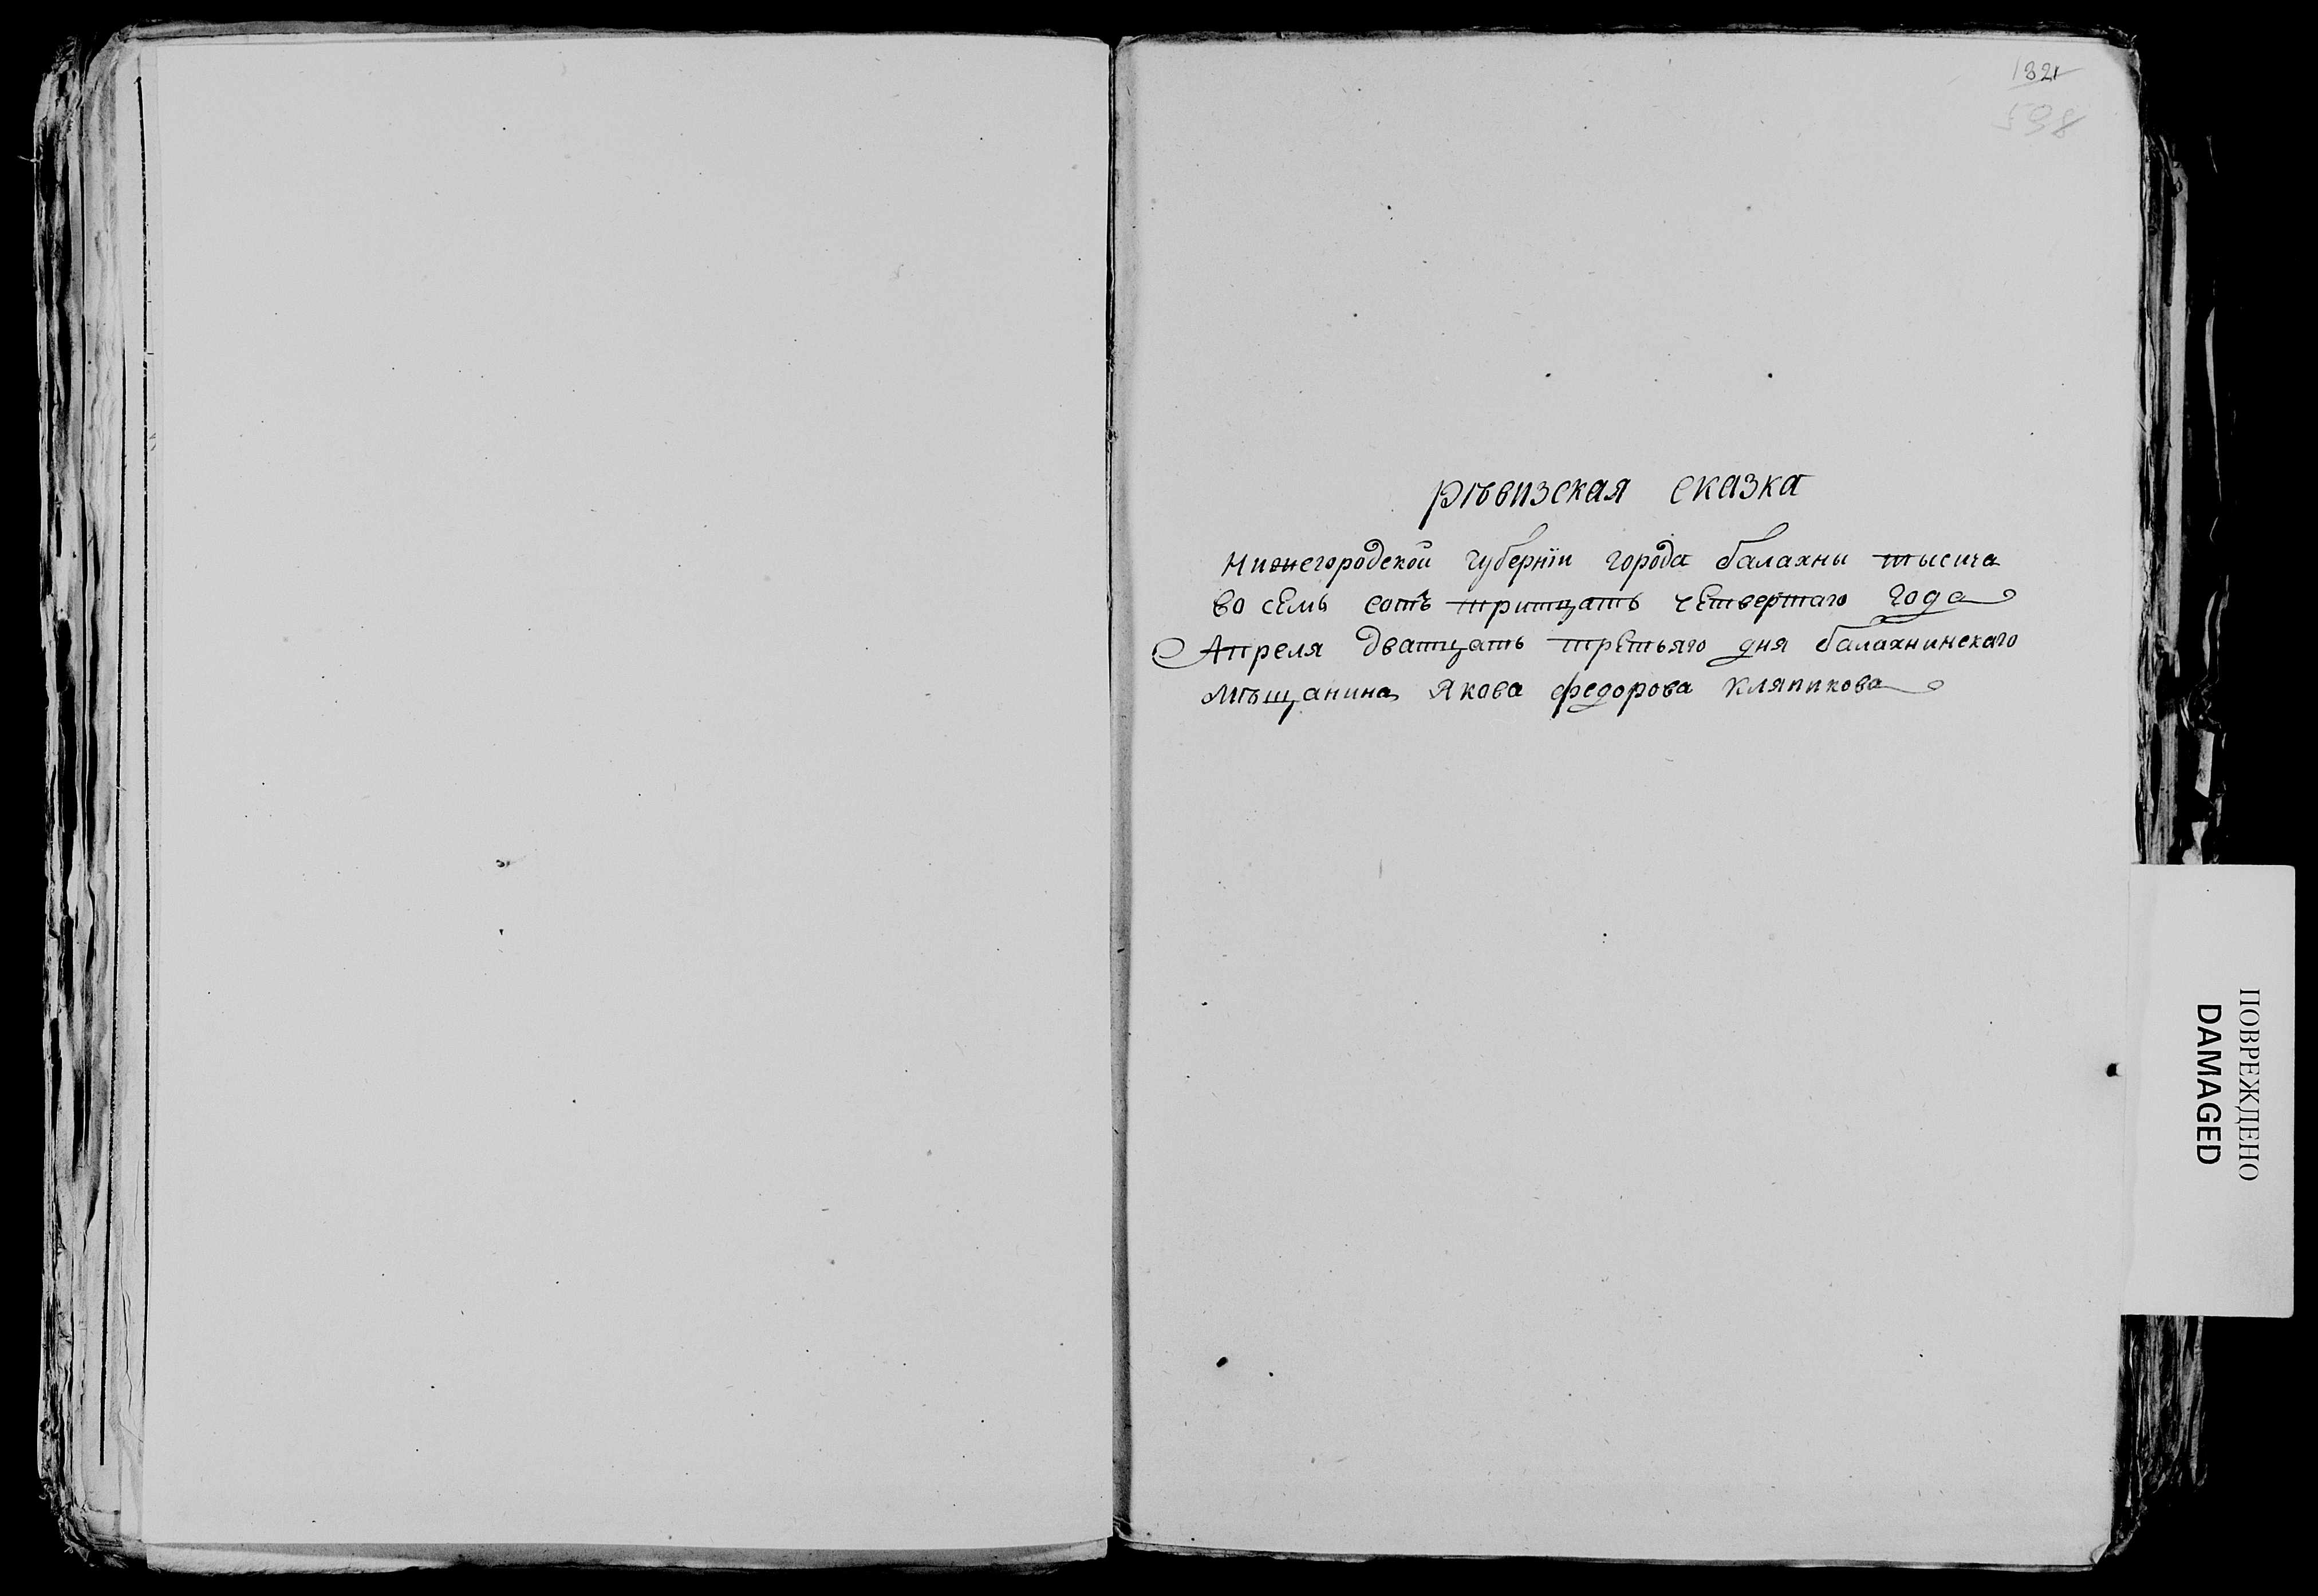 132
598
Рѣвизская сказка
Нижегородской губернїи города балахны тысеча
во семь сотъ тритцать четвертаго года
Апреля дватцать третьяго дня балахнинскаго
мѣщанина Якова федорова кляпикова
ПОВРЕЖДЕНО
DAMAGED